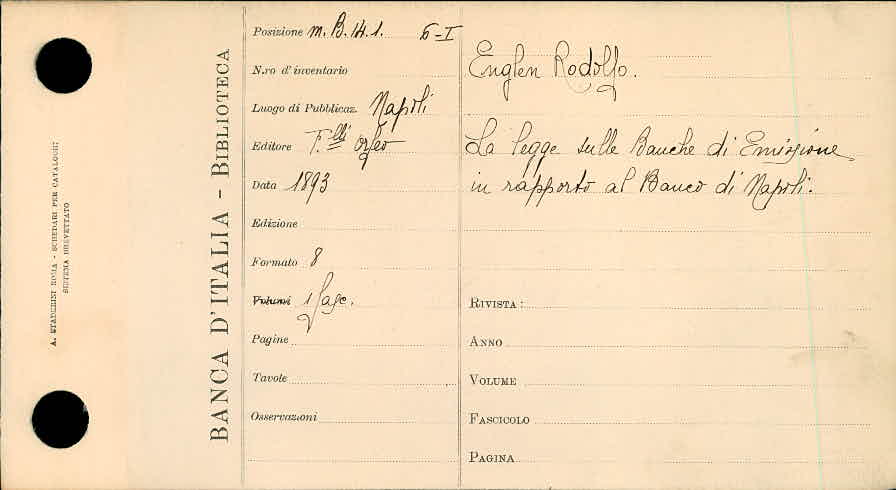 A. STADERINI ROMA - SCHEDARI PER CATALOGHI
SISTEMA BREVETTATO
BANCA D'ITALIA - BIBLIOTECA
Posizione m. B. 14. 1. 6-I
N.ro d'inventario
Luogo di Pubblicaz. Napoli
Editore F.lli Orfeo
Data 1893
Edizione
Formato 8
Volumi 1 fasc.
Pagine
Tavole
Osservazioni
Englen Rodolfo.
La legge sulle Banche di Emissione
in rapporto al Banco di Napoli.
RIVISTA:
ANNO
VOLUME
FASCICOLO
PAGINA